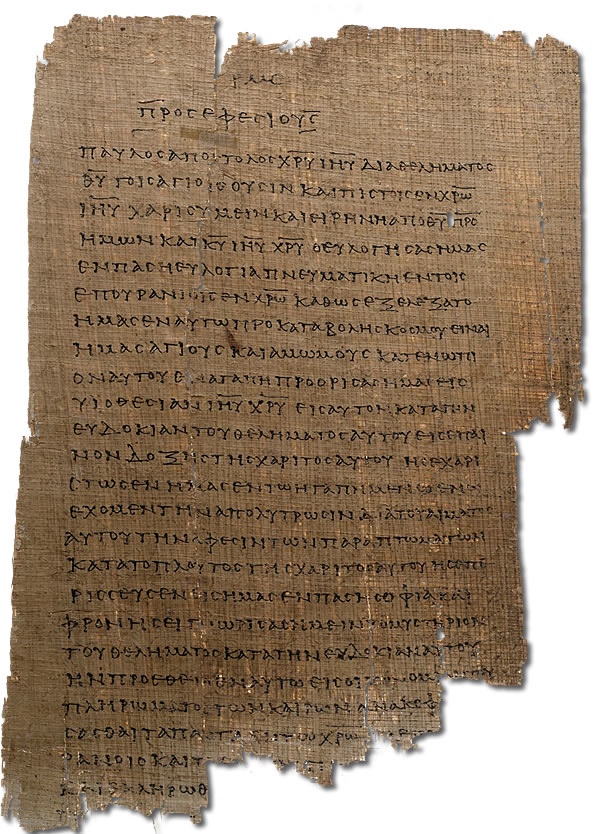 ΡΜϚ
ΠΡΟϹΕΦΕϹΙΟΥϹ
ΠΑΥΛΟϹΑΠΟϹΤΟΛΟϹΧ̅Ρ̅Υ̅Ι̅Η̅Υ̅ΔΙΑΘΕΛΗΜΑΤΟϹ
Θ̅Υ̅ΤΟΙϹΑΓΙΟΙϹΟΥϹΙΝΚΑΙΠΙϹΤΟΙϹΕΝΧ̅Ρ̅Ω̅
Ι̅Η̅Υ̅ΧΑΡΙϹΥΜΕΙΝΚΑΙΕΙΡΗΝΗΑΠΟΘ̅Υ̅Π̅Ρ̅Ϲ̅
ΗΜΩΝΚΑΙΚ̅Υ̅Ι̅Η̅Υ̅Χ̅Ρ̅Υ̅ΟΕΥΛΟΓΗϹΑϹΗΜΑϹ
ΕΝΠΑϹΗΕΥΛΟΓΙΑΠΝΕΥΜΑΤΙΚΗΕΝΤΟΙϹ
ΕΠΟΥΡΑΝΙΟΙϹΕΝΧ̅Ρ̅Ω̅ΚΑΘΩϹΕΞΕΛΕΞΑΤΟ
ΗΜΑϹΕΝΑΥΤΩΠΡΟΚΑΤΑΒΟΛΗϹΚΟϹΜΟΥΕΙΝΑΙ
ΗΜΑϹΑΓΙΟΥϹΚΑΙΑΜΩΜΟΥϹΚΑΤΕΝΩΠΙ
ΟΝΑΥΤΟΥΕΝΑΓΑΠΗΠΡΟΟΡΙϹΑϹΗΜΑϹΕΙϹ
ΥΙΟΘΕϹΙΑΝΙ̅Η̅Υ̅Χ̅Ρ̅Υ̅ΕΙϹΑΥΤΟΝΚΑΤΑΤΗΝ
ΕΥΔΟΚΙΑΝΤΟΥΘΕΛΗΜΑΤΟϹΑΥΤΟΥΕΙϹΕΠΑΙ
ΝΟΝΔΟΞΗϹΤΗϹΧΑΡΙΤΟϹΑΥΤΟΥΗϹΕΧΑΡΙ
ΤΩϹΕΝΗΜΑϹΕΝΤΩΗΓΑΠΗΜΕΝΩΕΝΩ
ΕΧΟΜΕΝΤΗΝΑΠΟΛΥΤΡΩϹΙΝΔΙΑΤΟΥΑΙΜΑΤΟϹ
ΑΥΤΟΥΤΗΝΑΦΕϹΙΝΤΩΝΠΑΡΑΠΤΩΜΑΤΩΝ
ΚΑΤΑΤΟΠΛΟΥΤΟϹΤΗϹΧΑΡΙΤΟϹΑΥΤΟΥΗϹΕΠΕ
ΡΙϹϹΕΥϹΕΝΕΙϹΗΜΑϹΕΝΠΑϹΗϹΟΦΙΑΚΑΙ
ΦΡΟΝΗϹΕΙΓΝΩΡΙϹΑϹΗΜΕΙΝΤΟΜΥϹΤΗΡΙΟΝ
ΤΟΥΘΕΛΗΜΑΤΟϹΚΑΤΑΤΗΝΕΥΔΟΚΙΑΝΑΥΤΟΥ
ΗΝΠΡΟΕΘΕΤΟΕΝΑΥΤΩΕΙϹΟΙΚΟΝΟΜ
ΠΛΗΡΩΜΑΤΟϹΤΩΝΚΑΙΡΩΝΑΝΑΚΕΦ
ϹΑϹΘΑΙΤΑΠΑΝΤΑΕΝΤΩΧ̅Ρ̅Ω̅
ΡΑΝΟΙϹΚΑΙΤ
ΚΑΙΕΚΛΗΡΩΘ